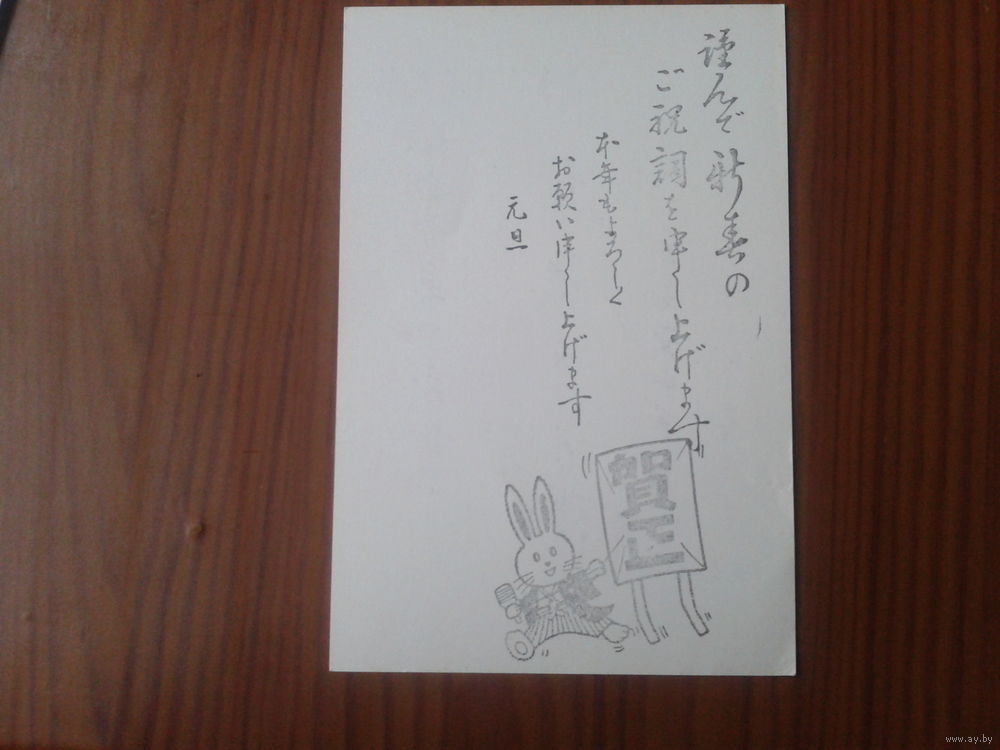 謹んで新春の
ご祝詞を申し上げます
本年もよろしく
お願い申し上げます
元旦
賀正
www.ay.by